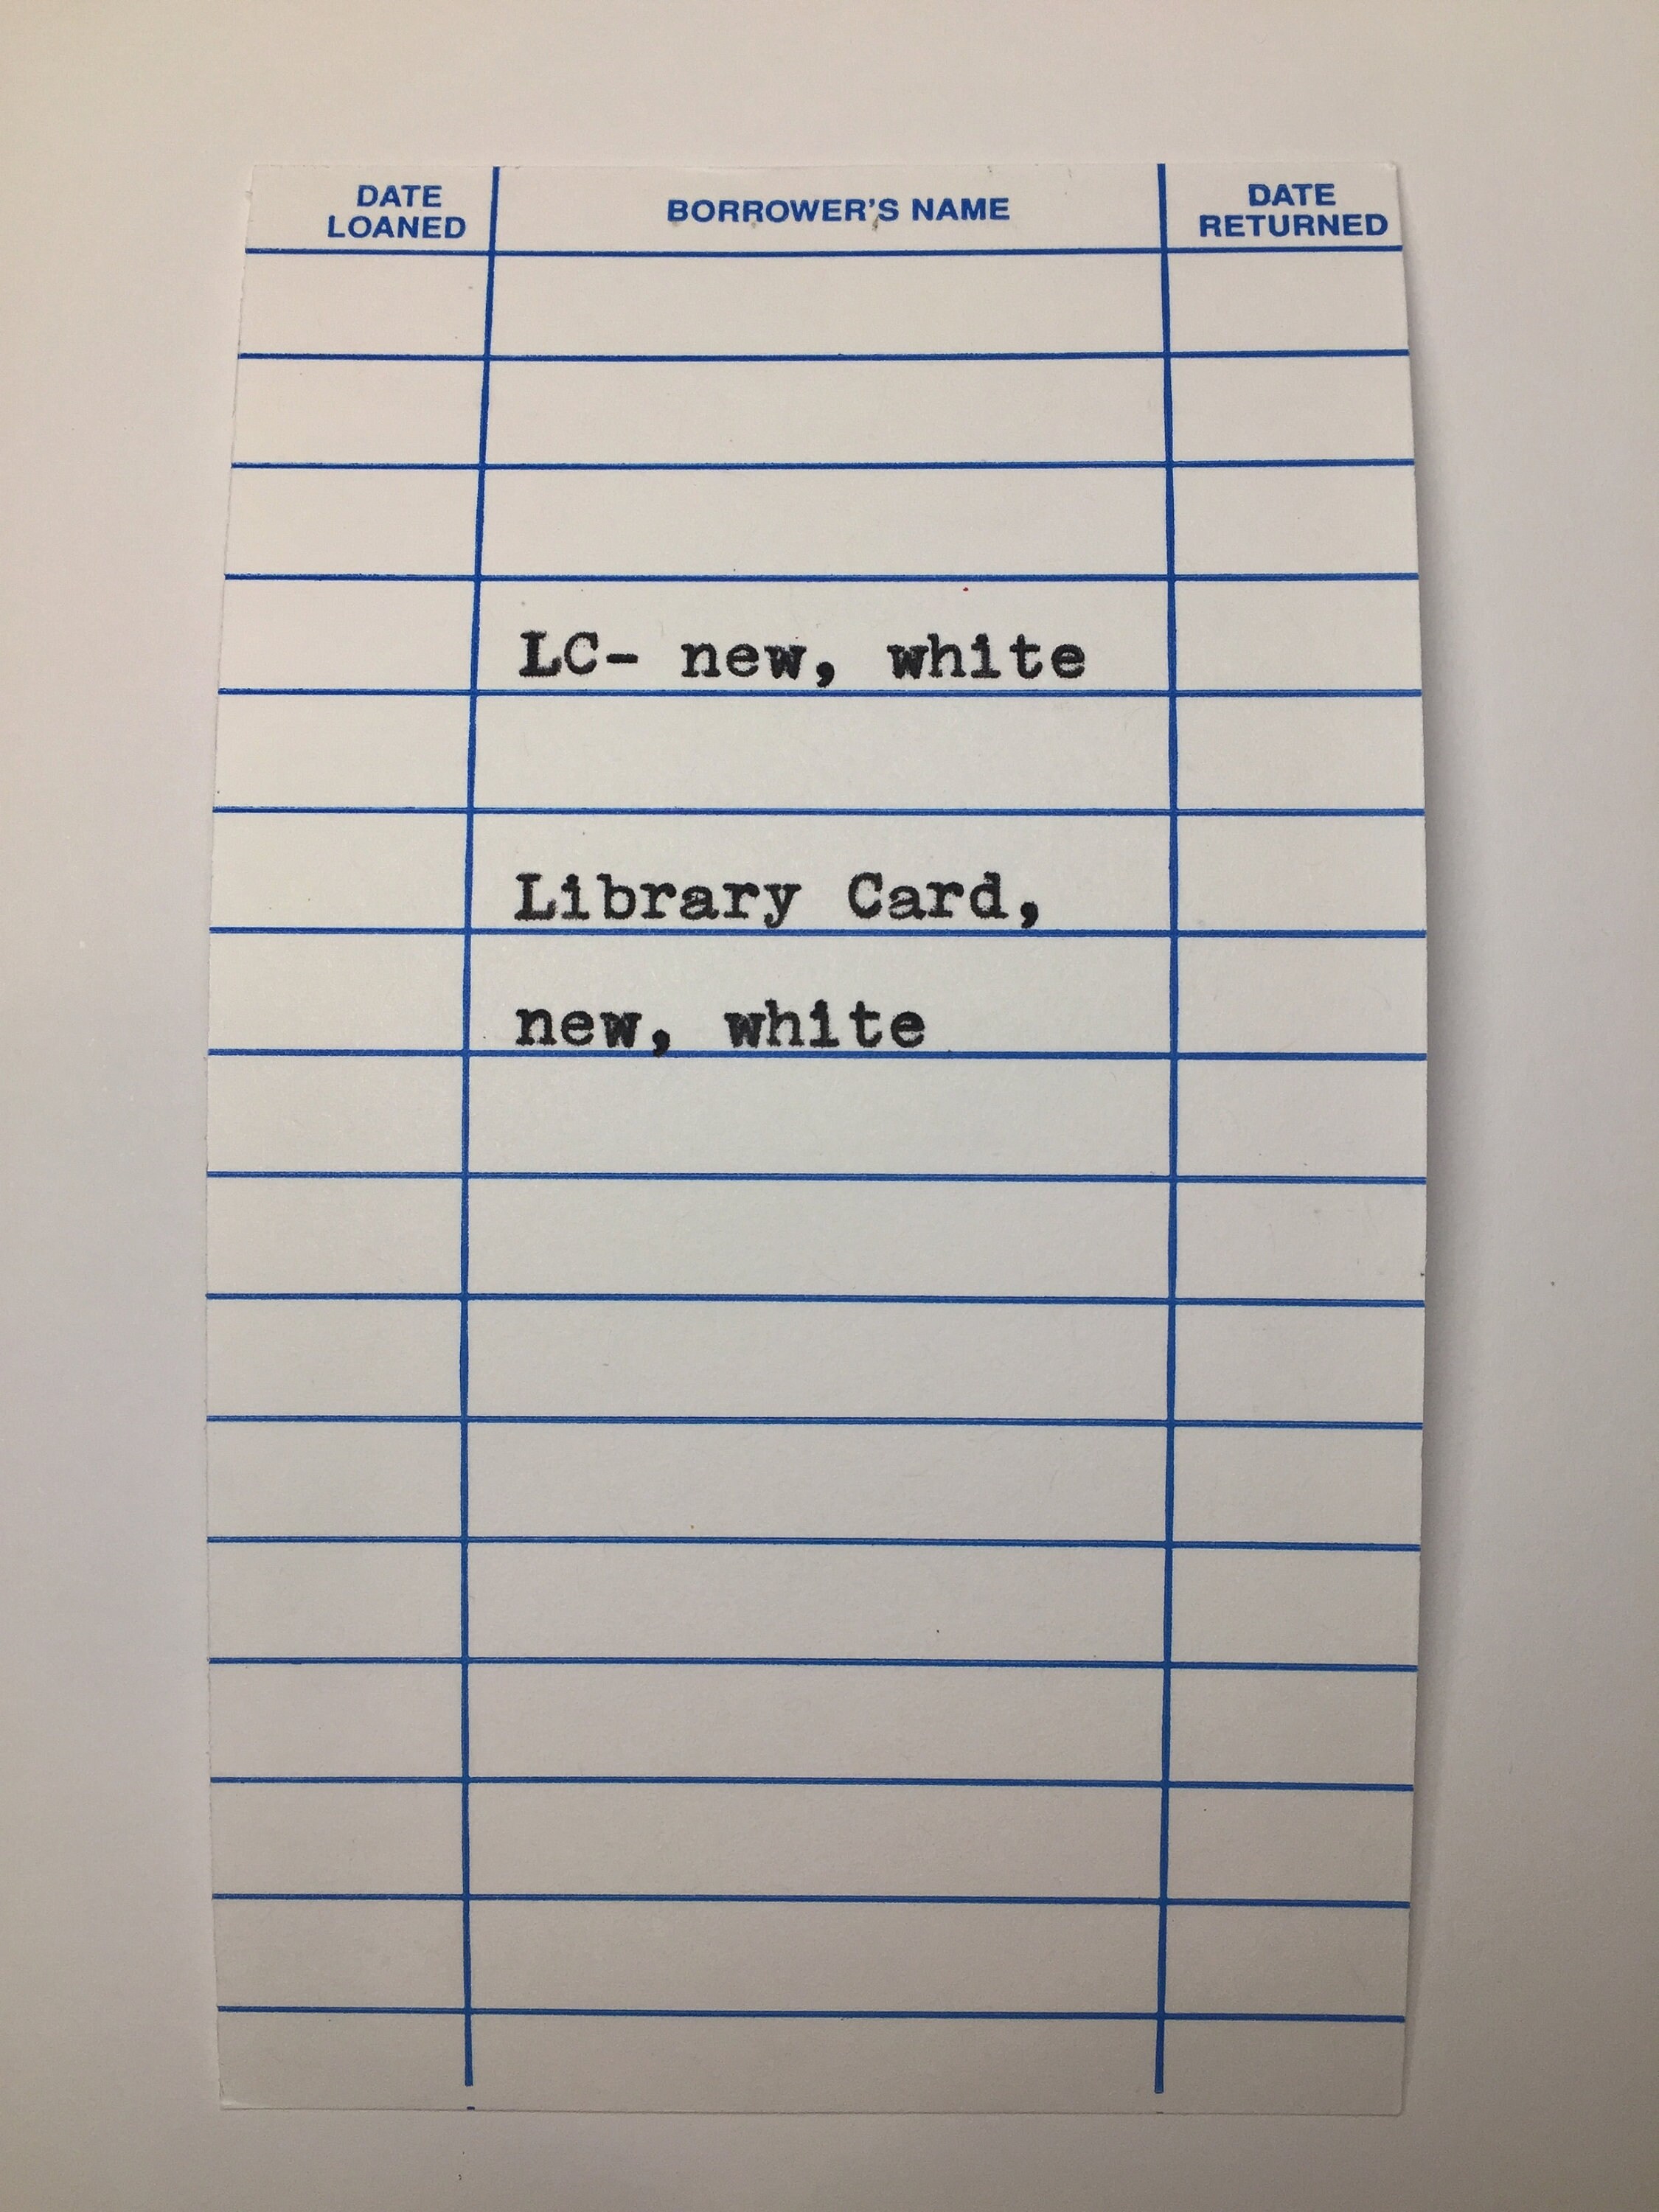 DATE LOANED BORROWER'S NAME DATE RETURNED
LC- new, white
Library Card,
new, white